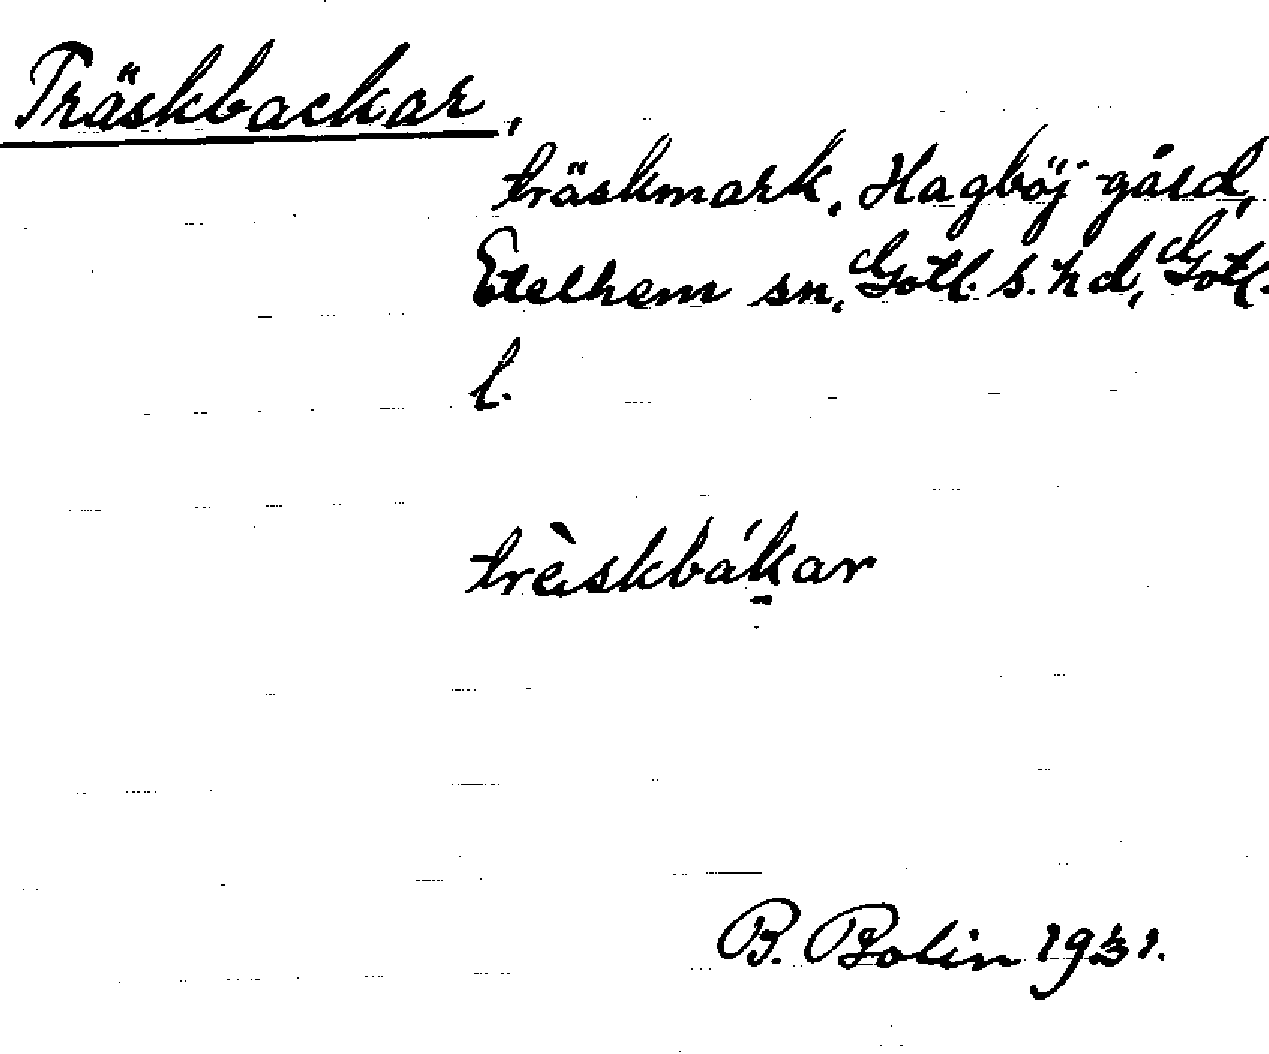 Träskbackar,
träskmark, Hagböj gård,
Etelhem sn, Gotl. s. hd, Gotl.
l.
trèskbákar
B. Bolin 1931.